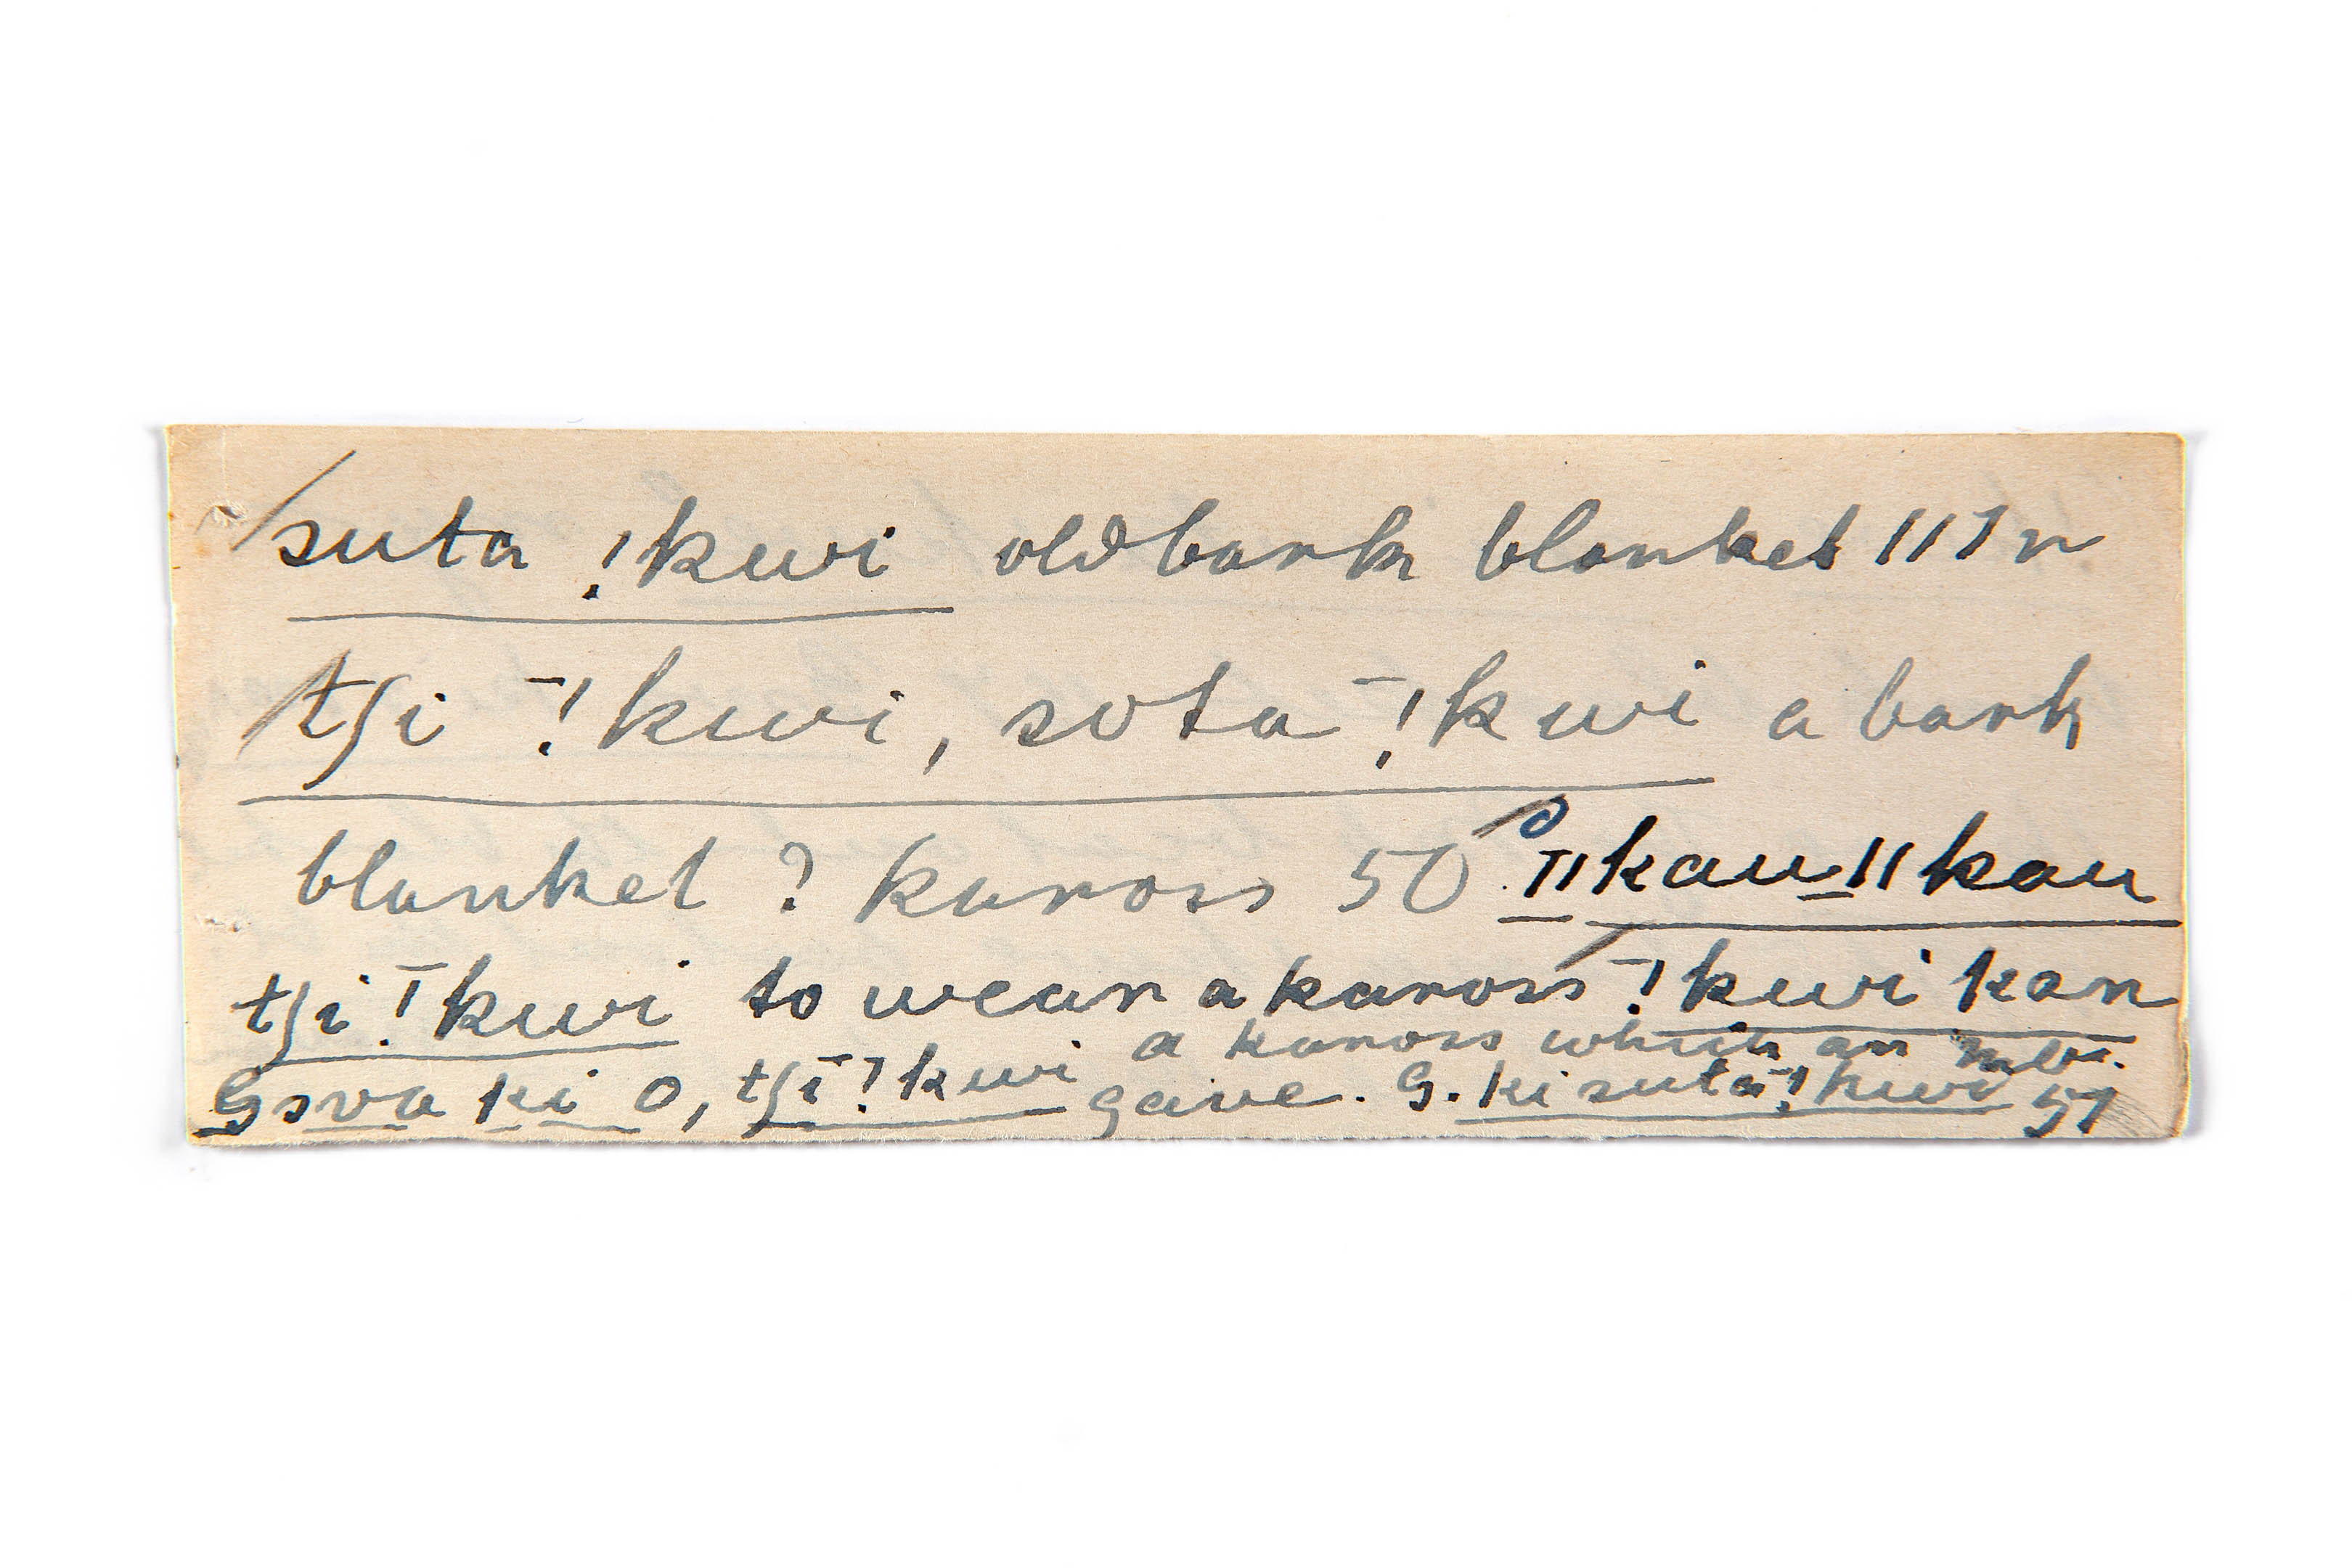 suta !kwi old bark blanket III n
tʃi ˉ!kwi, sota ˉ!kwi a bark
blanket ? kaross 50 ˉǁkau-ǁkau
tʃi ˉ!kwi to wear a kaross ˉ!kwi kan
a kaross which an
Gova ki o, tʃi ˉ!kwi gave. G. ki suta ˉ!kwi 51